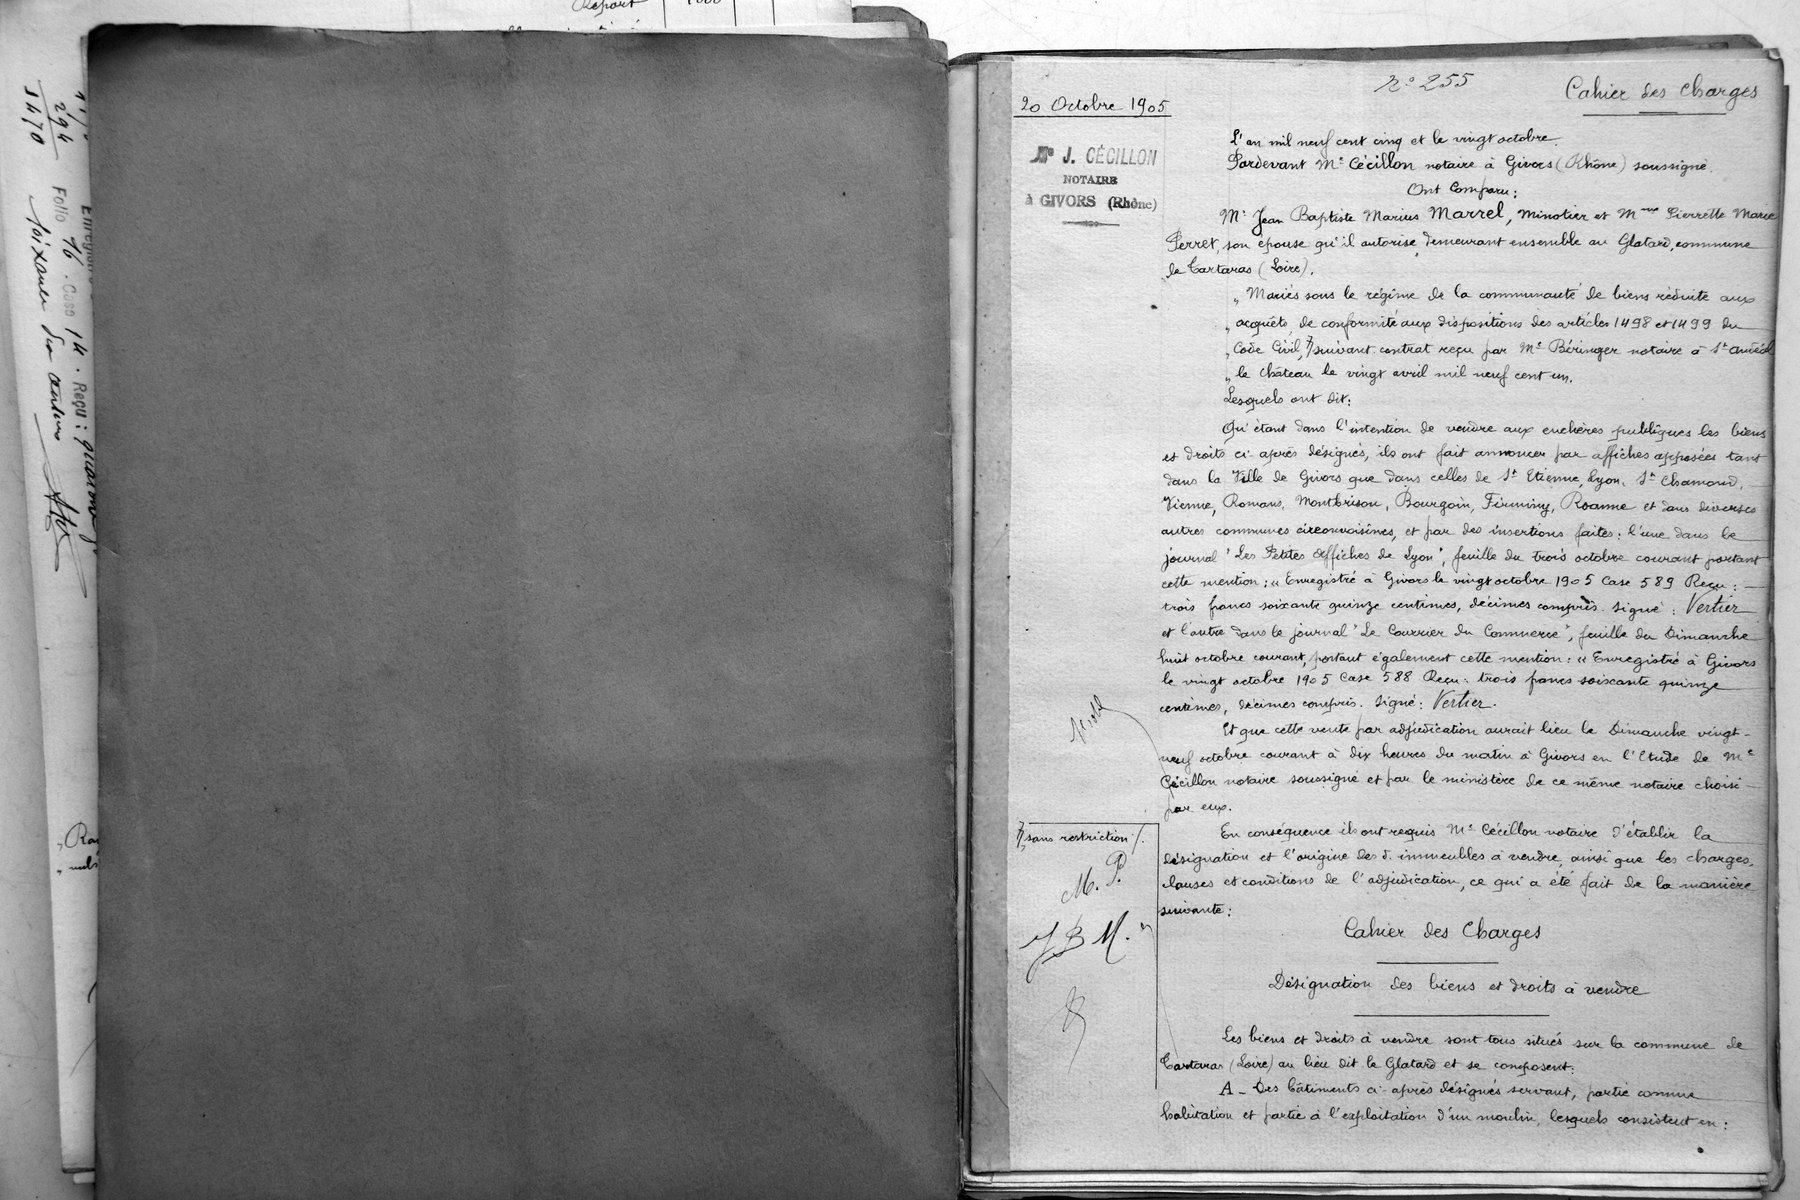 Report 1000
294
3470
Folio 16. Case 14. Reçu :
N° 255
Cahier des Charges
20 Octobre 1905
Me J. CÉCILLON
NOTAIRE
à GIVORS (Rhône)
L'an mil neuf cent cinq et le vingt octobre.
Pardevant Me Cécillon notaire à Givors (Rhône) soussigné.
Ont Comparu :
Mr Jean Baptiste Marius Marrel, Minotier et Mme Pierrette Marie
Perret, son épouse qu'il autorise, demeurant ensemble au Glatard, commune
de Tartaras (Loire).
„ Mariés sous le régime de la communauté de biens réduite aux
„ acquêts, de conformité aux dispositions des articles 1498 et 1499 du
„ Code Civil, suivant contrat reçu par Me Béringer notaire à St Andéol
„ le Château le vingt avril mil neuf cent un.
Lesquels ont dit :
Qu'étant dans l'intention de vendre aux enchères publiques les biens
et droits ci-après désignés, ils ont fait annoncer par affiches apposées tant
dans la Ville de Givors que dans celles de St Etienne, Lyon, St Chamond,
Vienne, Romans, Montbrison, Bourgoin, Firminy, Roanne et dans diverses
autres communes circonvoisines, et par des insertions faites : l'une dans le
journal "Les Petites Affiches de Lyon", feuille du trois octobre courant portant
cette mention : « Enregistré à Givors le vingt octobre 1905 Case 589 Reçu :
trois francs soixante quinze centimes, décimes compris. Signé : Vertier
et l'autre dans le journal "Le Courrier du Commerce", feuille du Dimanche
huit octobre courant, portant également cette mention : « Enregistré à Givors
le vingt octobre 1905 Case 588 Reçu : trois francs soixante quinze
centimes, décimes compris. Signé : Vertier.
Et que cette vente par adjudication aurait lieu le Dimanche vingt-
neuf octobre courant à dix heures du matin à Givors en l'Etude de Me
Cécillon notaire soussigné et par le ministère de ce même notaire choisi
par eux.
En conséquence ils ont requis Me Cécillon notaire d'établir la
désignation et l'origine des d. immeubles à vendre, ainsi que les charges,
clauses et conditions de l'adjudication, ce qui a été fait de la manière
suivante :
sans restriction
M. P.
J B M.
Cahier des Charges
Désignation des biens et droits à vendre
Les biens et droits à vendre sont tous situés sur la commune de
Tartaras (Loire) au lieu dit le Glatard et se composent :
A - Des bâtiments ci-après désignés servant, partie comme
habitation et partie à l'exploitation d'un moulin, lesquels consistent en :